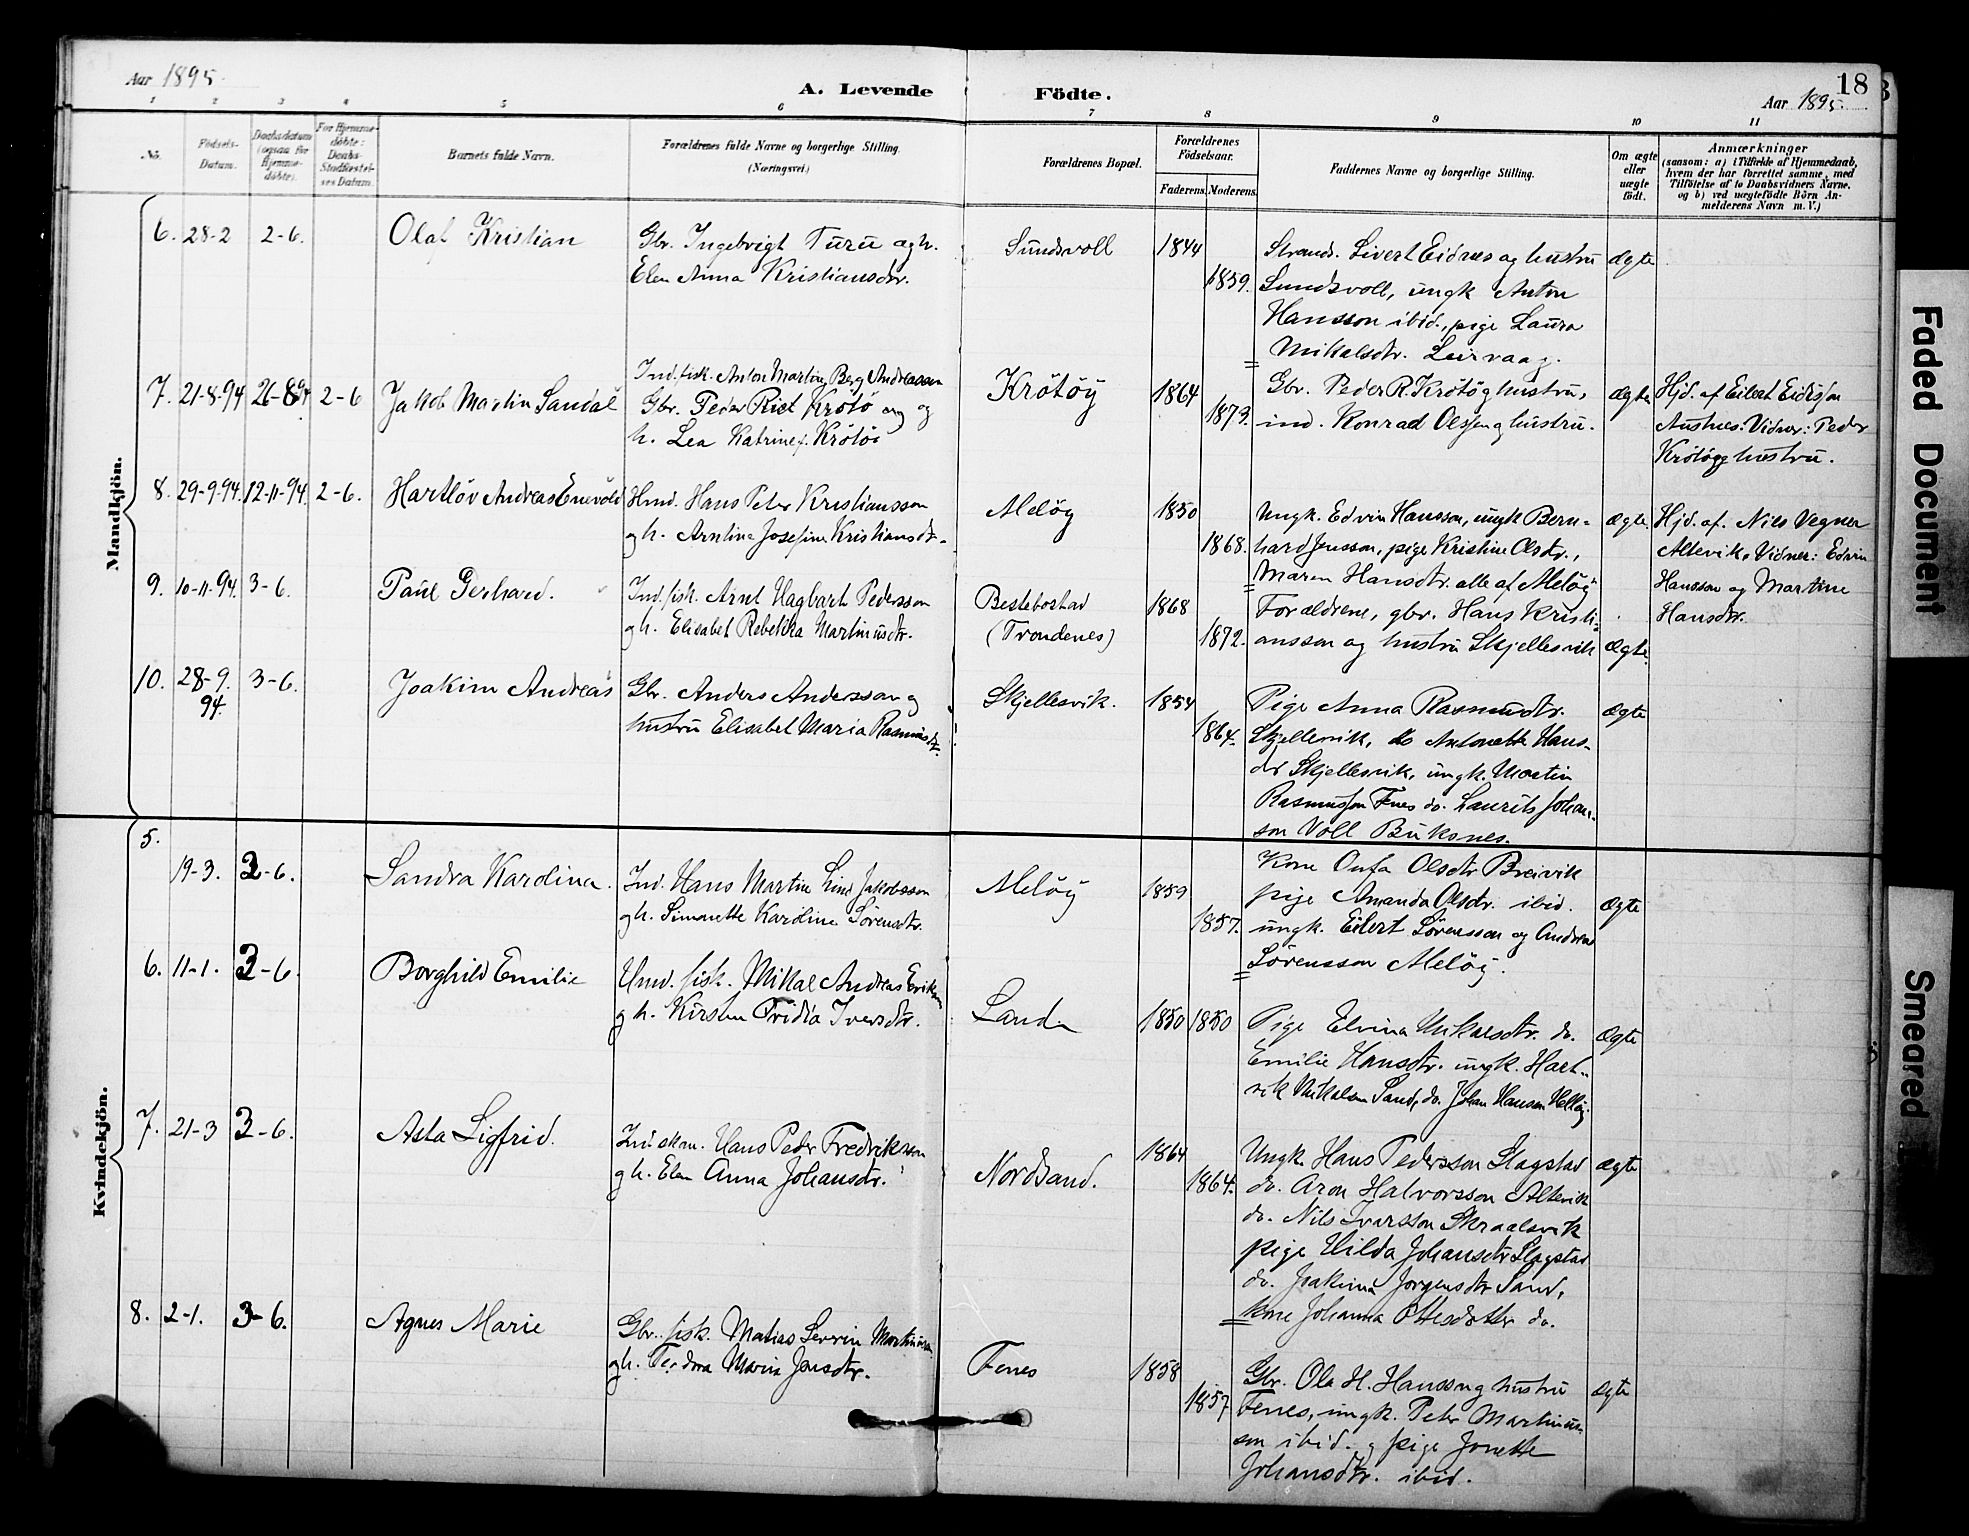 Aar 1895.
A. Levende Födte.
18
Aar 1895.
1 2 3 4 5 6 7 8 9 10 11
No.
Födsels-
Datum.
Daabsdatum
(ogsaa for
Hjemme-
döbte).
For Hjemme-
döbte:
Daabs-
Stadfæstel-
ses Datum.
Barnets fulde Navn.
Forældrenes fulde Navne og borgerlige Stilling.
(Næringsvei.)
Forældrenes Bopæl.
Forældrenes
Födselsaar.
Faderens.
Moderens.
Faddernes Navne og borgerlige Stilling.
Om ægte
eller
uægte
født.
Anmærkninger
(saasom: a) i Tilfælde af Hjemmedaab,
hvem der har forrettet samme, med
Tilföielse af to Daabsvidners Navne.
og b) ved uægtefödte Börn An-
melderens Navn m. V.)
Mandkjön.
6. 28-2 2-6.
Olaf Kristian
Gbr. Ingebrigt Turu og h.
Elen Anna Kristiansdtr.
Sundsvoll
1844
1859.
Strands. Sivert Eidnes og hustru
Sundsvoll, ungk Anton
Hansson ibid., pige Laura
Mikalsdtr. Leirvaag.
ægte
7. 21-8-94 26-8-94 2-6
Jakob Martin Sandal
Ind. fisk. Anton Martin Berg Andreassen
Gbr. Peder Krötö og
h. Lea Katrine Krötö
Krötöy
1864
1873.
Gbr. Peder R. Krötö g hustru,
ind. Konrad Olssen g hustru.
ægte
Hjd. af Eilert Eidissen
Austnes. Vidner: Peder
Krötö g hustru.
8. 29-9-94. 12-11-94. 2-6.
Hartløv Andreas Enevold
Hmd. Hans Peter Kristiansson
g h. Arntina Josefine Kristiansdtr.
Melöy
1850
1868.
Ungk. Edvin Hansson, ungk Bern-
hard Jensson, pige Kristine Olsdtr.,
Maren Hansdtr. alle af Melöy
ægte
Hjd. af. Nils Vegner
Altevik. Vidner: Edvin
Hansson og Martine
Hansdtr.
9. 10-11-94. 3-6.
Paul Gerhard.
Ind. fisk. Arnt Hagbart Pedersson
g h. Elisabet Rebekka Martinusdtr.
Bestebostad
(Trondenes)
1868
1872.
Forældrene, gbr. Hans Kristi-
ansson og hustru Skjellesvik
ægte.
10. 28-9.
94.
3-6.
Joakim Andreas
Gbr. Anders Andersson g
hustru Elisabet Maria Rasmusdtr.
Skjellesvik.
1854
1864.
Pige Anna Rasmusdtr.
Skjellesvik, do Antonette Hans-
dtr Skjellesvik, ungk. Martin
Rasmussen Fnes do. Laurits Johan-
son Voll Buksnes.
ægte
Kvindekjön.
5.
19-3. 3-6.
Sandra Karolina.
Ind. Hans Martin Lind Jakobsson
g h. Simonette Karoline Sörensdtr.
Melöy
1859
1857.
Kone Olsdtr Breivik
pige Amanda Olsdtr. ibid.
ungk. Eilert Sörensson og Andreas
Sörensson Melöy.
ægte
6. 11-1. 3-6.
Borghild Emilie
Hmd. fisk. Mikal Andreas Eriksen
g h. Kirsten Fridia Iversdtr.
Sand
1850 1850
Pige Elvina Mikalsdtr. do.
Emilie Hansdtr. ungk. Hart-
vik Mikalsen Sand, do. Johan Hansen Melöy.
ægte
7. 21-3 3-6.
Asta Sigfrid.
Ind skom. Hans Peter Fredriksson
g h. Elen Anna Johansdtr.
Nordsand.
1864
1864.
Ungk. Hans Pedersson Slagstad
do. Aron Halvorsson Altevik
do. Nils Ivarsson Skraalsvik
pige Hilda Johansdtr Slagstad
do. Joakima Jörgensdtr Sand,
kone Johanna Ottesdatter do.
ægte
8. 2-1. 3-6.
Agnes Marie
Gbr. fisk. Matias Severin Martinusen
g h. Tedora Maria Jensdtr.
Fenes
1858
1857
Gbr. Ola H. Hansson g hustru
Fenes, ungk. Peter Martinus-
son ibid. g pige Jonette
Johansdtr. ibid.
ægte
Faded Document
Smeared